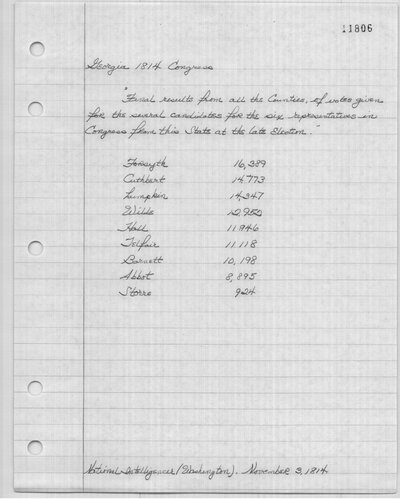 11806
Georgia 1814 Congress
"Final results from all the Counties, of votes given
for the several candidates for the six representatives in
Congress from this State at the late Election."
Forsyth 16,389
Cuthbert 14,773
Lumpkin 14,347
Wilde 12,952
Hall 11946
Telfair 11118
Barnett 10,198
Abbot 8,895
Storrs 924
National Intelligencer (Washington). November 3, 1814